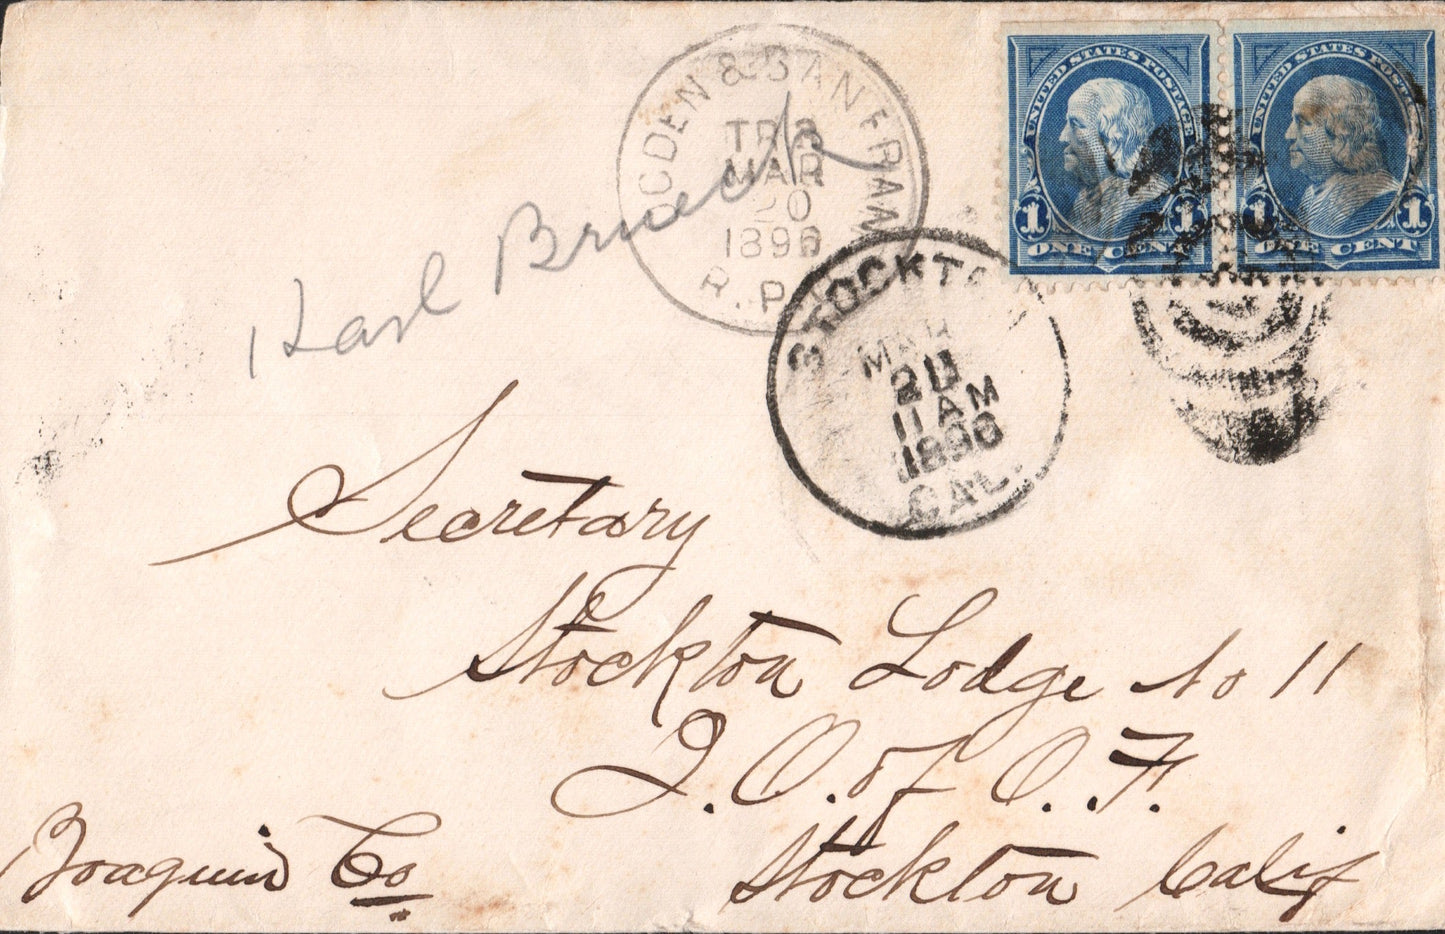 OGDEN & SAN FRAN
TR 2
MAR
20
1896
R.P.
UNITED STATES POSTAGE
1 1
ONE CENT
UNITED STATES POSTAGE
1 1
ONE CENT
Karl
STOCKTON
MAR
11 AM
1896
CAL.
Secretary
Stockton Lodge No 11
I.O. of O.F.
Stockton Calif
Joaquin Co